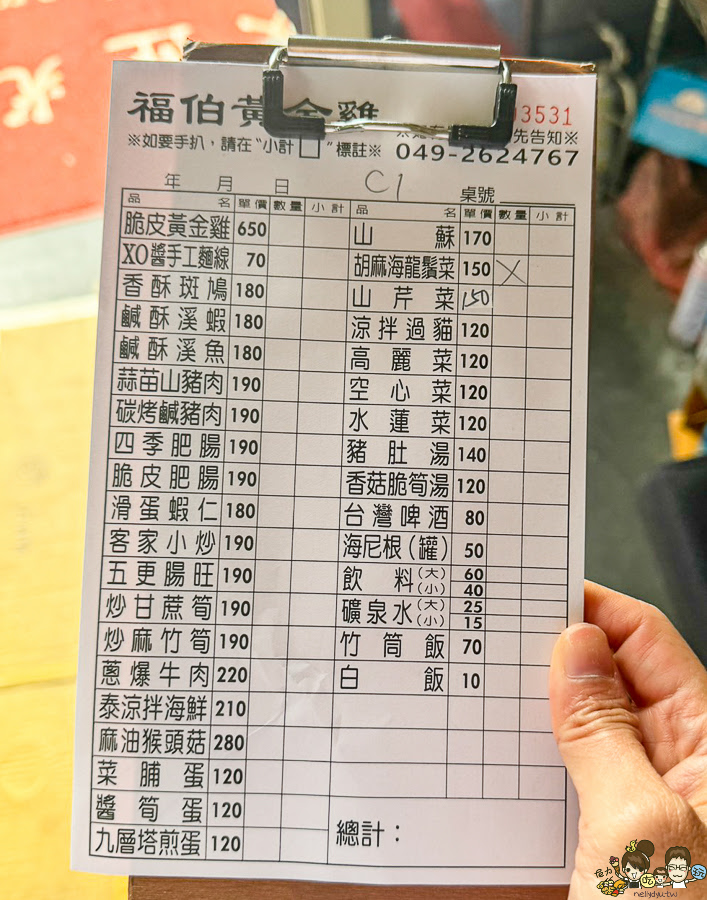 福伯黃金雞
03531
※如要手扒，請在“小計□”標註※
先告知※
049-2624767
年 月 日 C1 桌號
品名 單價 數量 小計 品名 單價 數量 小計
脆皮黃金雞 650 山蘇 170
XO醬手工麵線 70 胡麻海龍鬚菜 150 X
香酥斑鳩 180 山芹菜 150
鹹酥溪蝦 180 涼拌過貓 120
鹹酥溪魚 180 高麗菜 120
蒜苗山豬肉 190 空心菜 120
碳烤鹹豬肉 190 水蓮菜 120
四季肥腸 190 豬肚湯 140
脆皮肥腸 190 香菇脆筍湯 120
滑蛋蝦仁 180 台灣啤酒 80
客家小炒 190 海尼根(罐) 50
五更腸旺 190 飲料(大) 60
(小) 40
炒甘蔗筍 190 礦泉水(大) 25
(小) 15
炒麻竹筍 190 竹筒飯 70
蔥爆牛肉 220 白飯 10
泰涼拌海鮮 210
麻油猴頭菇 280
菜脯蛋 120
醬筍蛋 120
九層塔煎蛋 120
總計：
nellydyu.tw